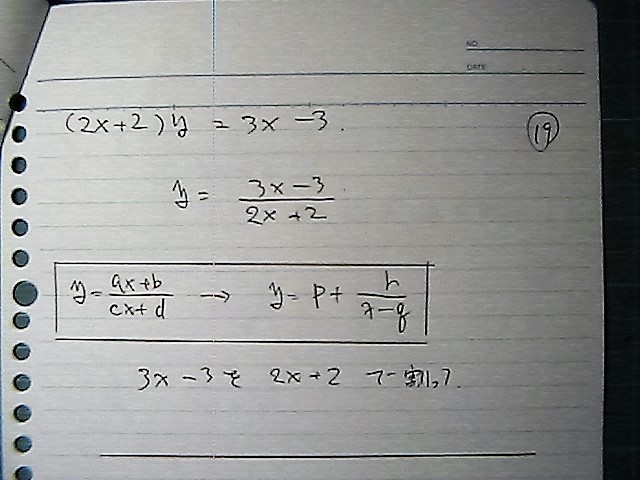 NO.
DATE
(2x+2)y = 3x -3.
19
y = (3x-3)/(2x+2)
y = (ax+b)/(cx+d) → y = p + h/(x-q)
3x-3を 2x+2 で割って.